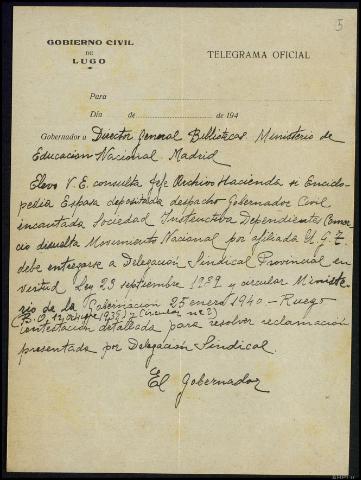 5
GOBIERNO CIVIL
DE
LUGO
TELEGRAMA OFICIAL
Para
Día de de 194
Gobernador a Director General Bibliotecas Ministerio de
Educacion Nacional Madrid
Elevo V.E. consulta Jefe Archivo Hacienda si Enciclo-
pedia Espasa depositada despacho Gobernador Civil
incautada Sociedad Instructiva Dependientes Comer-
cio disuelta Movimiento Nacional por afiliada U.G.T.
debe entregarse a Delegación Sindical Provincial en
virtud Ley 23 septiembre 1939 y circular Ministe-
rio de la Gobernacion 25 enero 1940 - Ruego
(B.O. 1939) y (Circular nº 2)
contestación detallada para resolver reclamación
presentada por Delegación Sindical.
El Gobernador